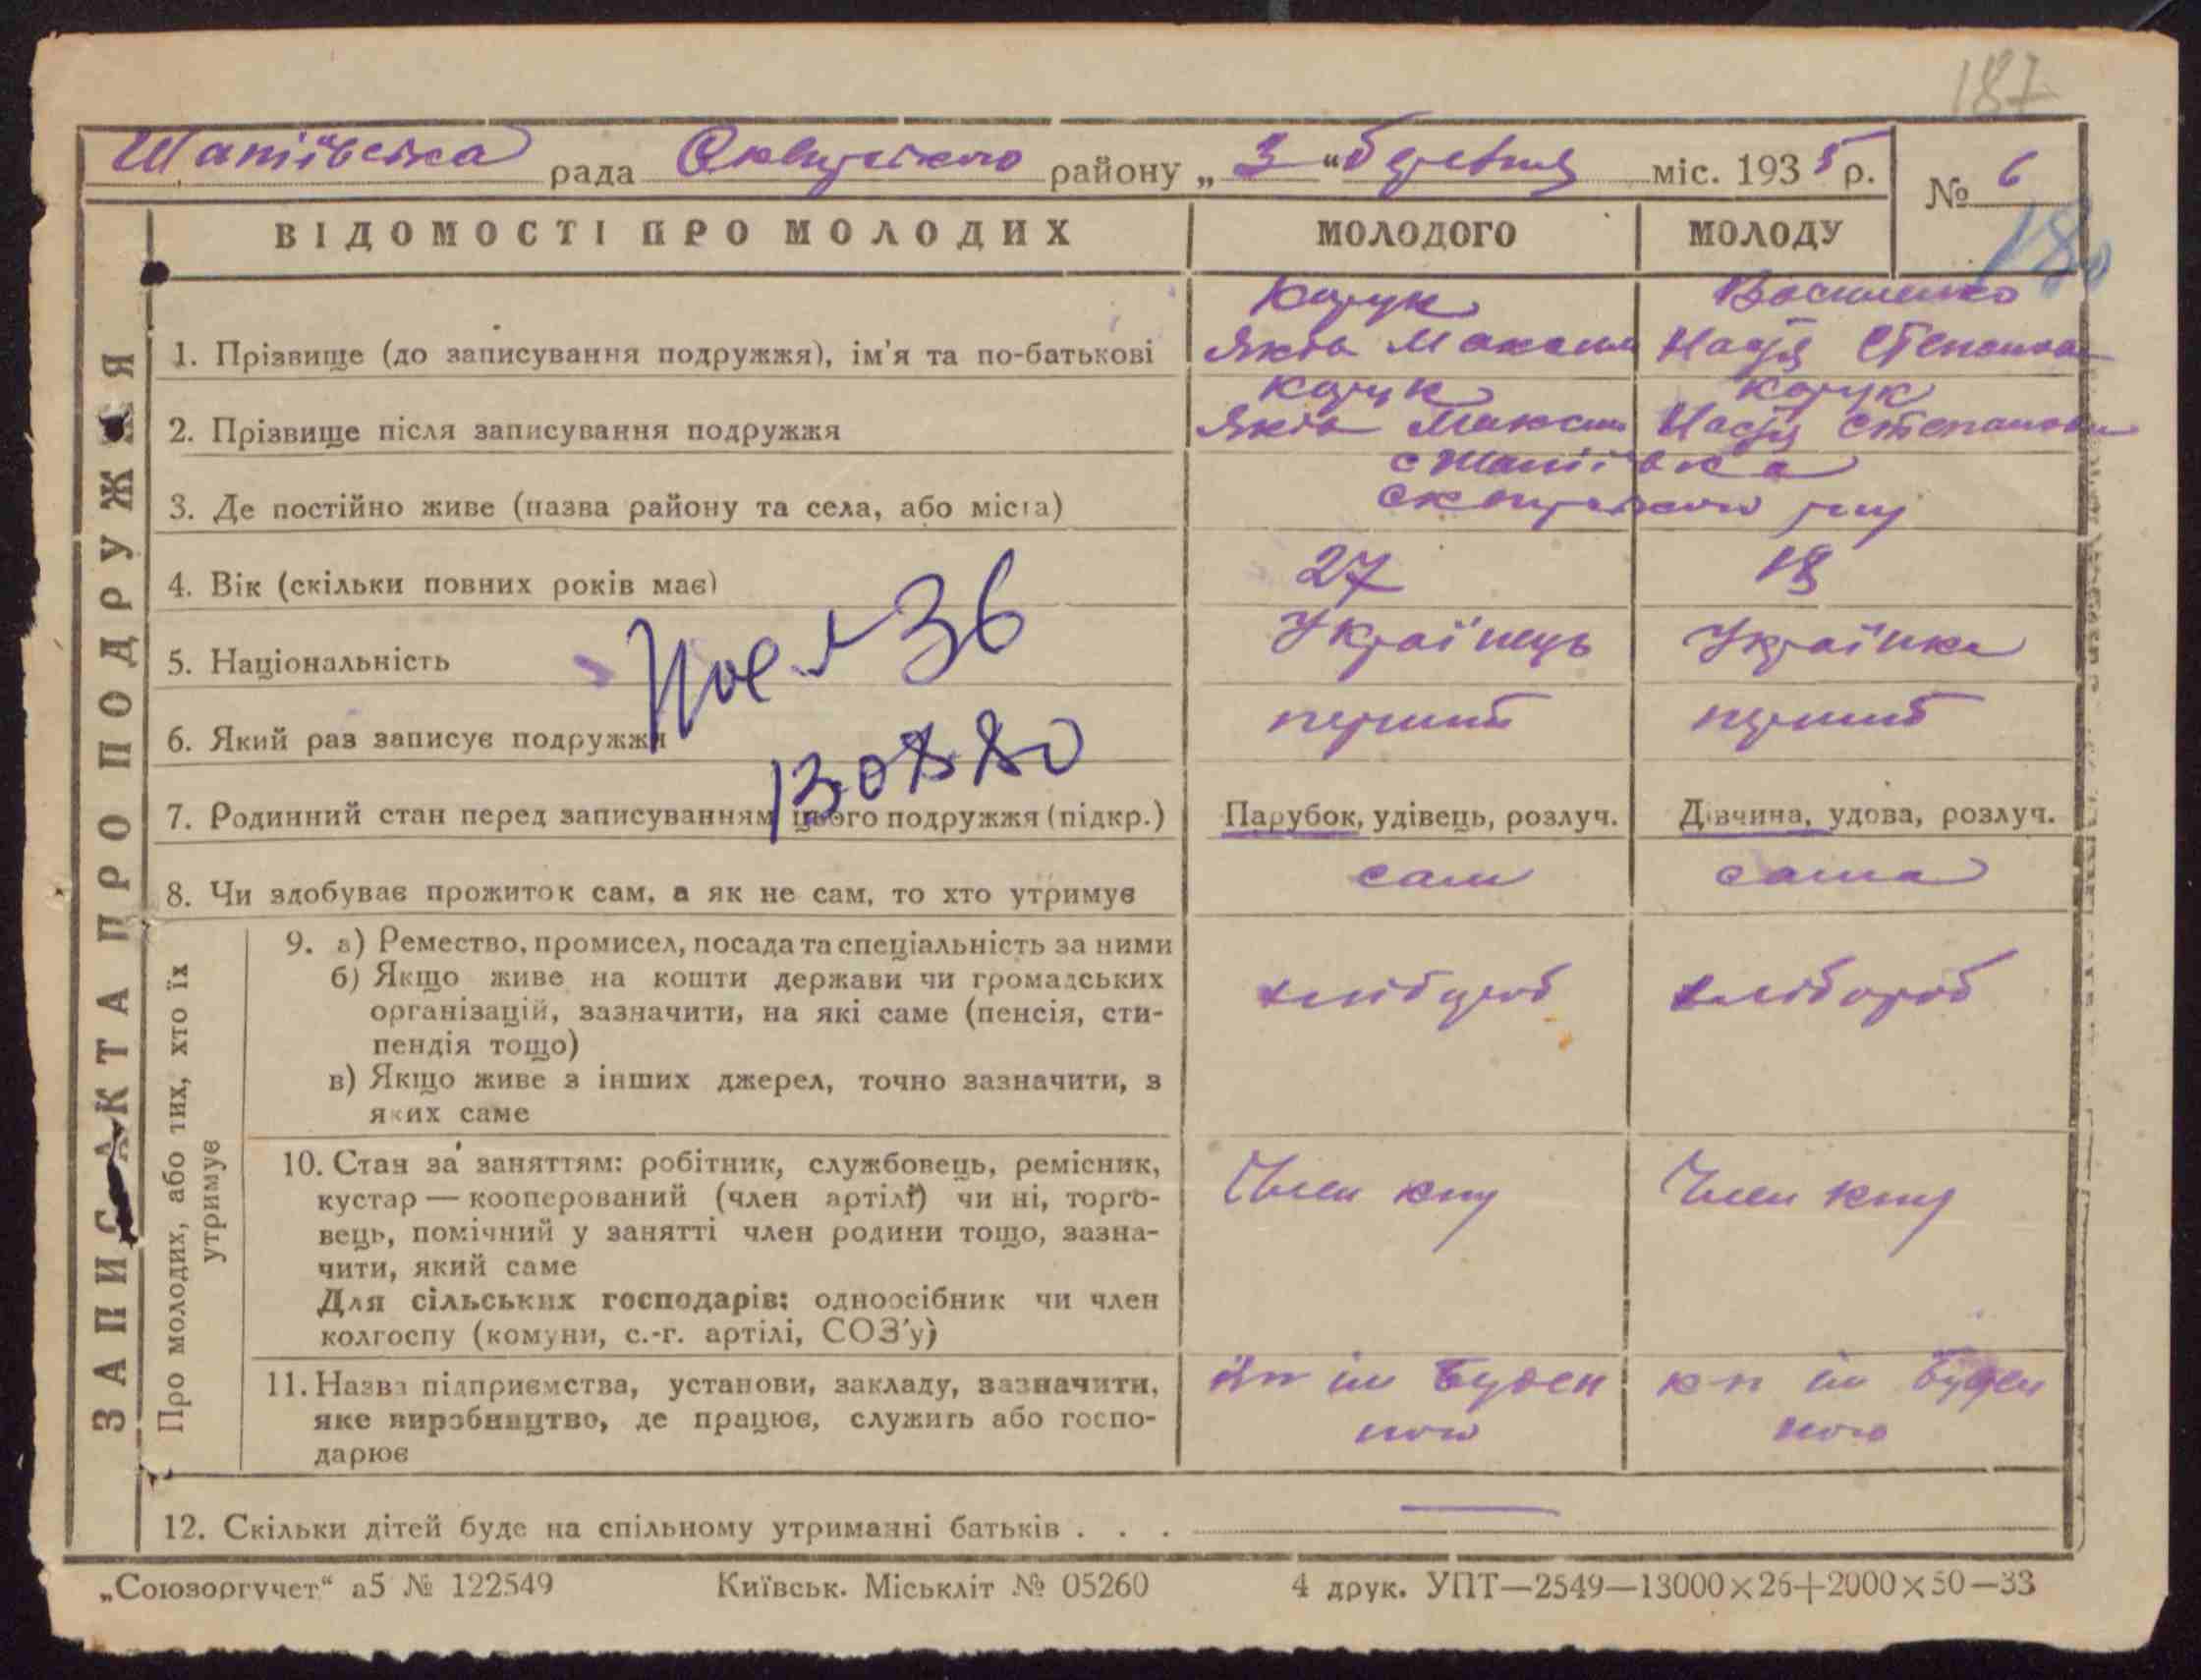 187
Шапіївська рада Сквирського району „ 3 “ березня міс. 1935 р. № 6
180
ВІДОМОСТІ ПРО МОЛОДИХ МОЛОДОГО МОЛОДУ
ЗАПИС АКТА ПРО ПОДРУЖЖЯ
Василенко
1. Прізвище (до записування подружжя), ім'я та по-батькові Яків Максим Надія Степанов
2. Прізвище після записування подружжя Яків Максим Надія Степанов
с Шапіївка
3. Де постійно живе (назва району та села, або міста) Сквирського
4. Вік (скільки повних років має) 27 18
5. Національність Українець Українка
6. Який раз записує подружжя перший перший
36
130880
7. Родинний стан перед записуванням цього подружжя (підкр.) Парубок, удівець, розлуч. Дівчина, удова, розлуч.
8. Чи здобуває прожиток сам, а як не сам, то хто утримує сам сама
Про молодих, або тих, хто їх утримує
9. а) Ремество, промисел, посада та спеціальність за ними
б) Якщо живе на кошти держави чи громадських хлібороб хлібороб
організацій, зазначити, на які саме (пенсія, сти-
пендія тощо)
в) Якщо живе з інших джерел, точно зазначити, з
яких саме
10. Стан за заняттям: робітник, службовець, ремісник, Член Член
кустар — кооперований (член артілі) чи ні, торго-
вець, помічний у занятті член родини тощо, зазна-
чити, який саме
Для сільських господарів: одноосібник чи член
колгоспу (комуни, с.-г. артілі, СОЗ'у)
11. Назва підприємства, установи, закладу, зазначити, ім Буден ім Буден
яке виробництво, де працює, служить або госпо- ного ного
дарює
12. Скільки дітей буде на спільному утриманні батьків . . . —
„Союзоргучет“ а5 № 122549 Київськ. Міськліт № 05260 4 друк. УПТ—2549—13000×26+2000×50—33